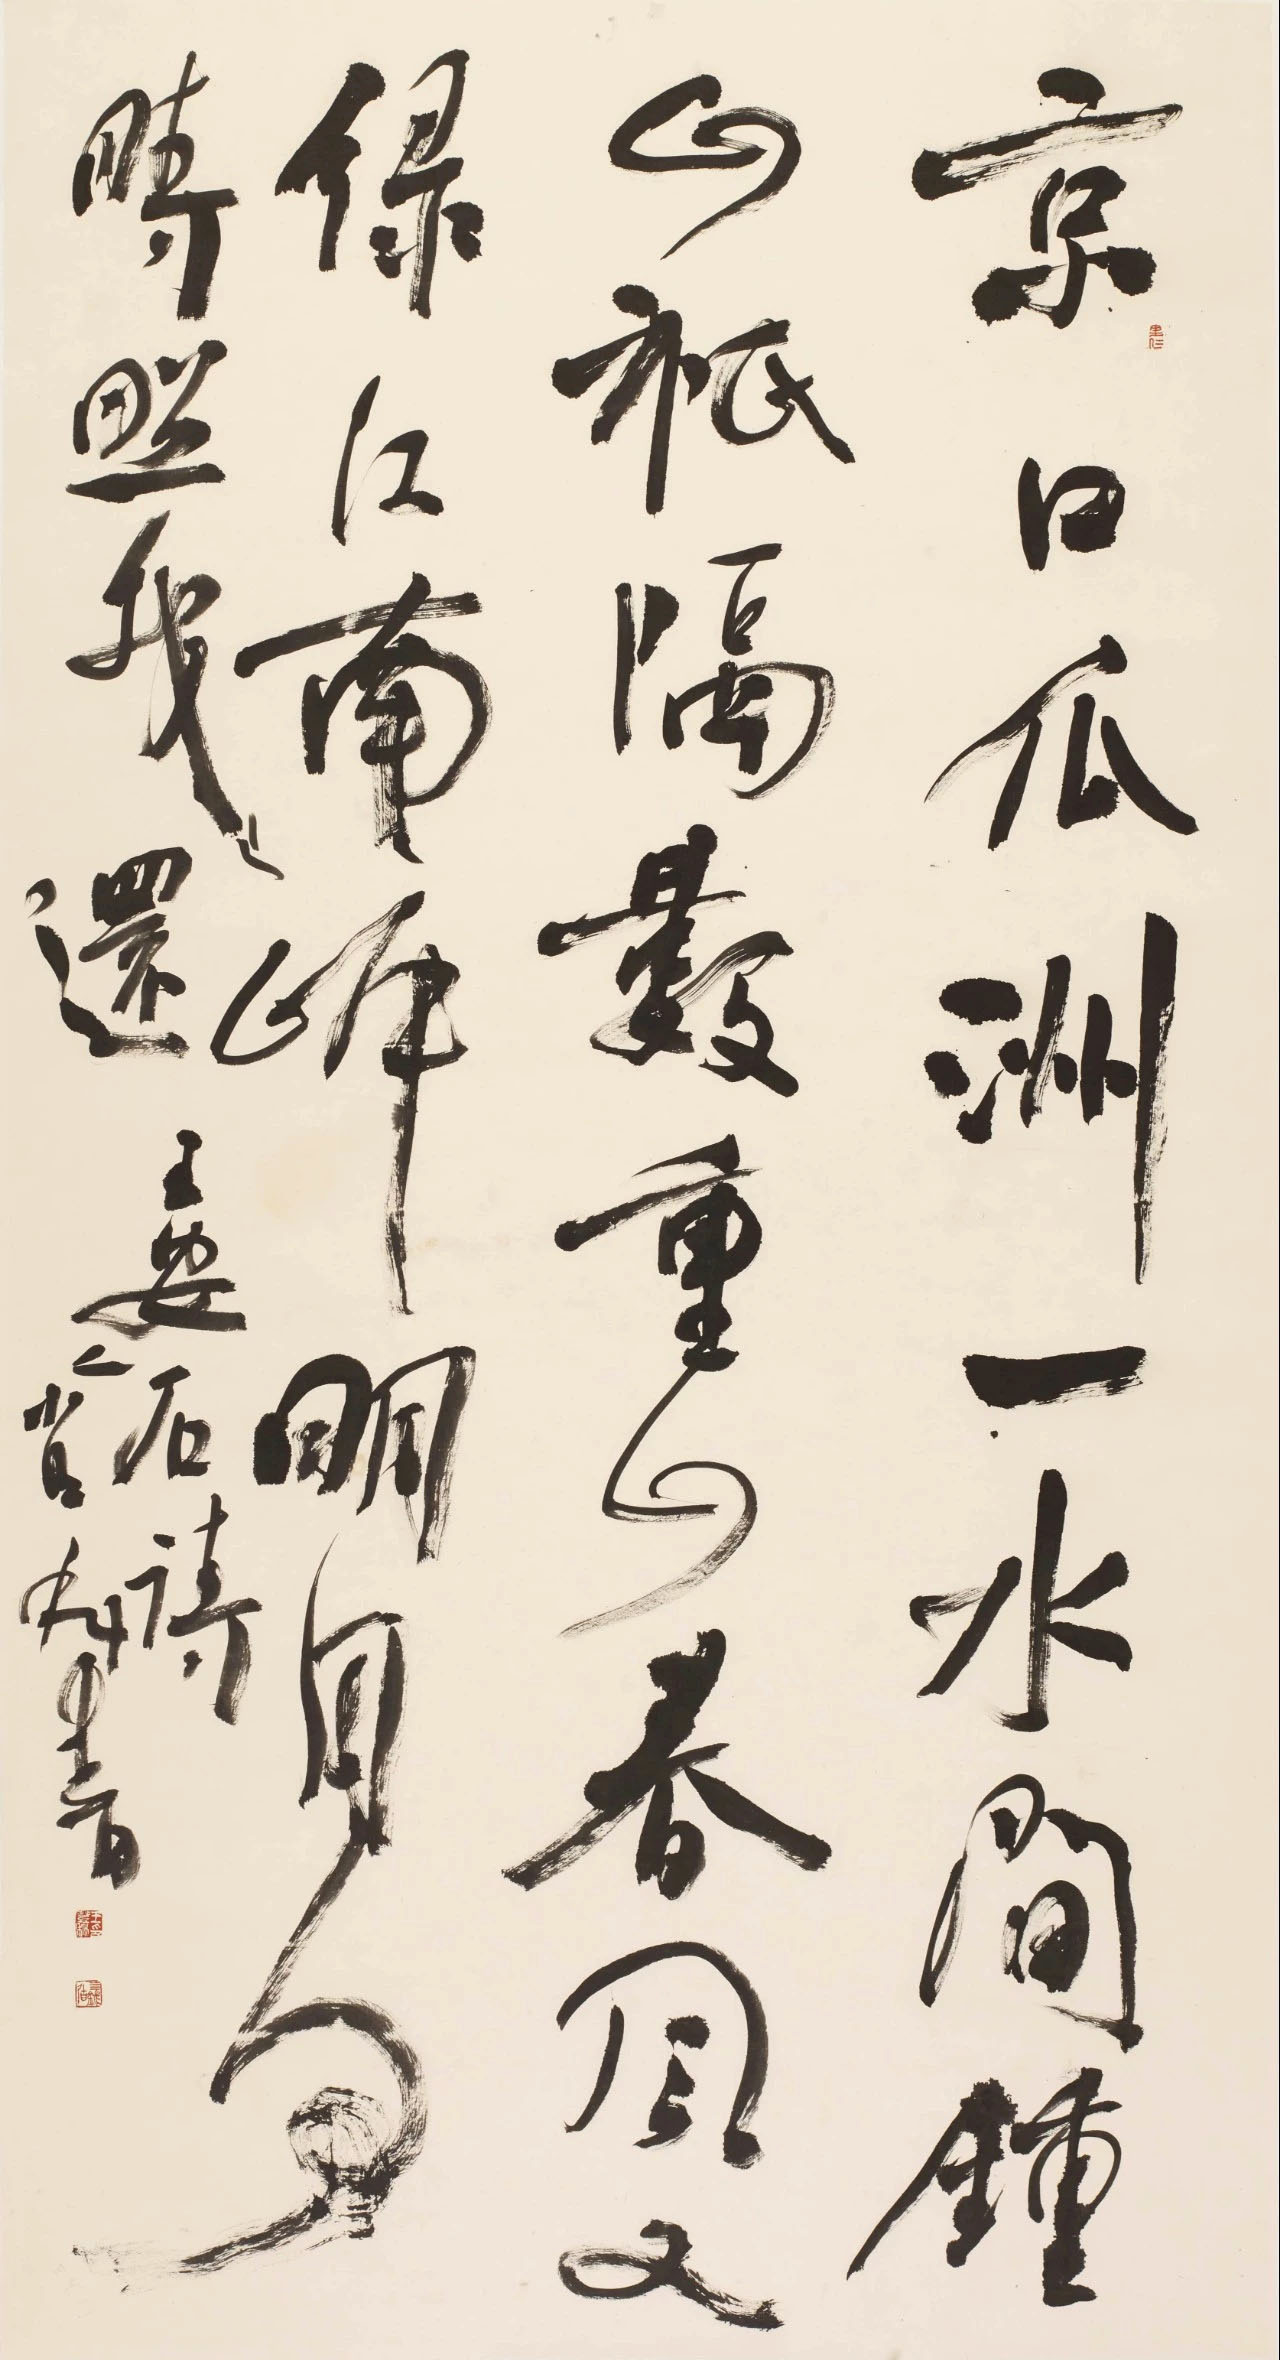 京口瓜洲一水間鍾
山秖隔數重山春風又
綠江南岸明月何
時照我還
王安石詩
書